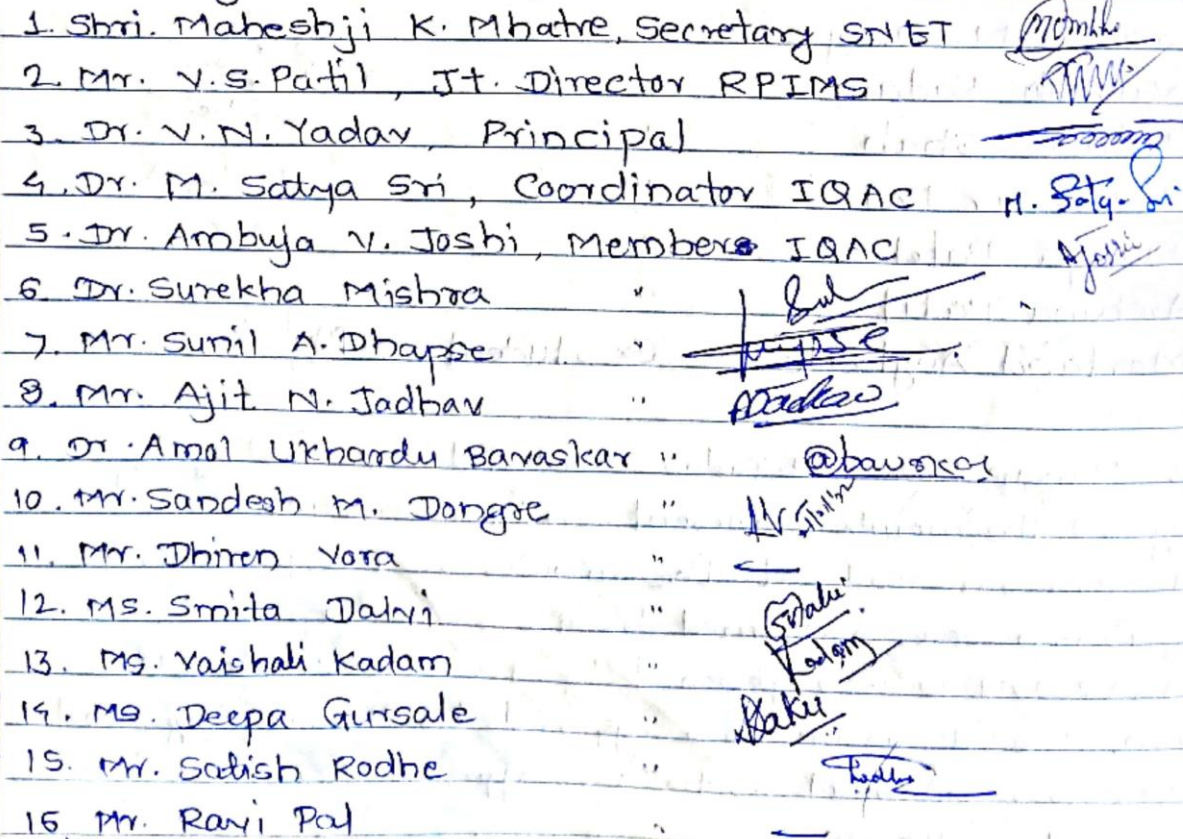 1. Shri. Maheshji K. Mhatre, Secretary SNET
2. Mr. V.S. Patil, Jt. Director RPIMS
3. Dr. V.N. Yadav, Principal
4. Dr. M. Satya Sri, Coordinator IQAC M. Satya Sri
5. Dr. Ambuja V. Joshi, Members IQAC AJoshi
6. Dr. Surekha Mishra "
7. Mr. Sunil A. Dhapse "
8. Mr. Ajit N. Jadhav " AJadhav
9. Dr. Amol Ukhardu Bavaskar " @bavskar
10. Mr. Sandesh M. Dongre "
11. Mr. Dhiren Vora " —
12. Ms. Smita Dalvi "
13. Ms. Vaishali Kadam " Kadam
14. Ms. Deepa Gursale "
15. Mr. Satish Rodhe "
16 Mr. Ravi Pal " —